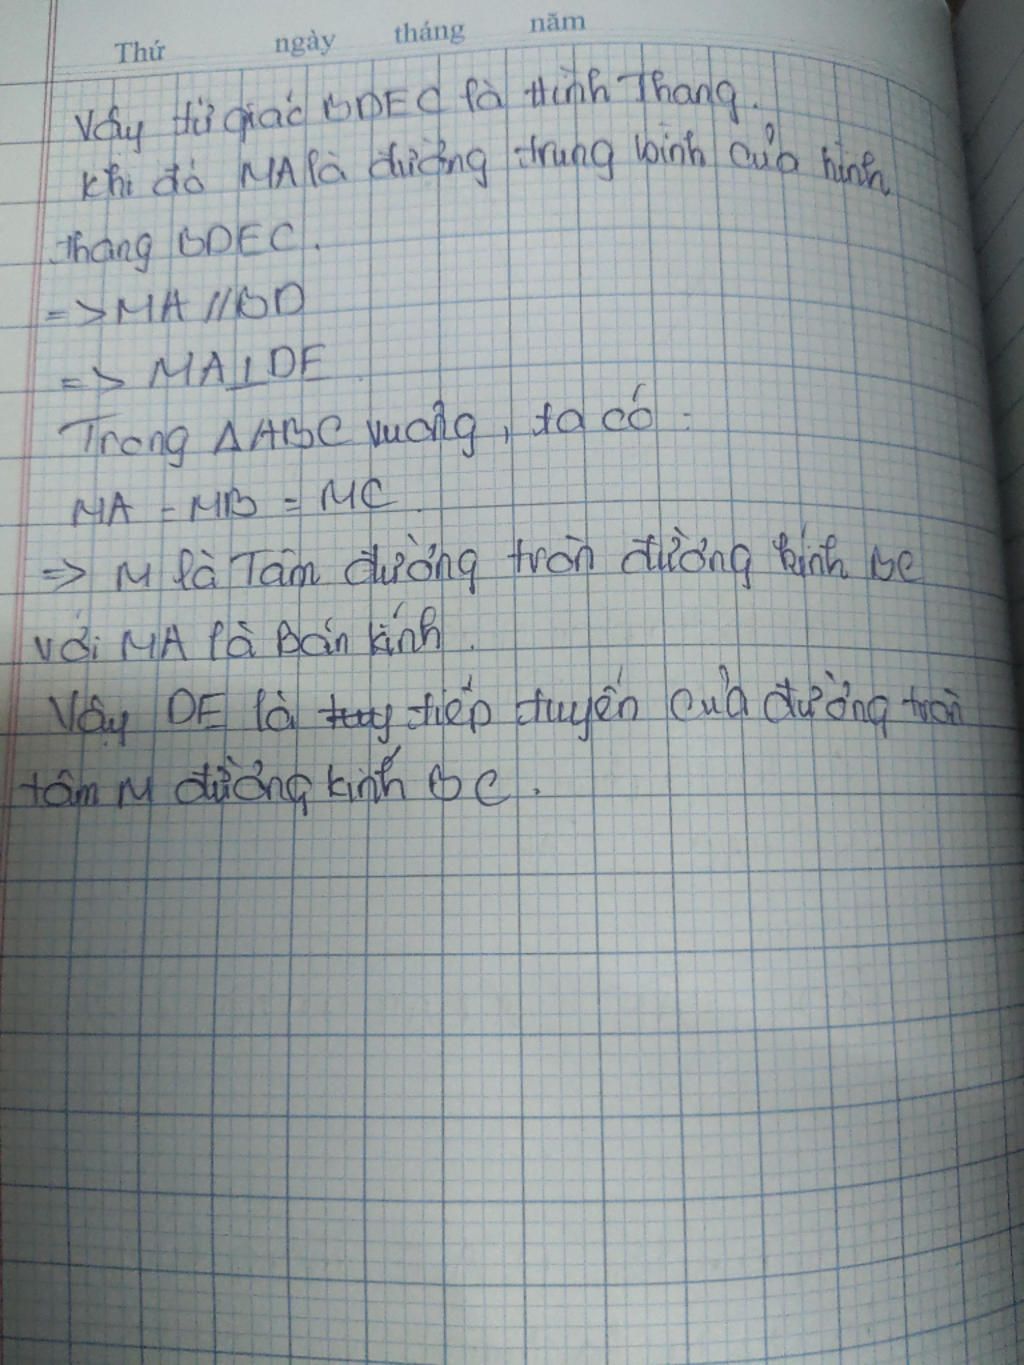 Thứ ngày tháng năm
Vậy tứ giác BDEC là Hình Thang.
Khi đó MA là đường trung bình của hình
thang BDEC.
=> MA // BD
=> MA ⊥ DE
Trong ΔABC vuông, ta có:
MA = MB = MC
=> M là Tâm đường tròn đường kính BC
với MA là Bán kính.
Vậy DE là tuy tiếp tuyến của đường tròn
tâm M đường kính BC.